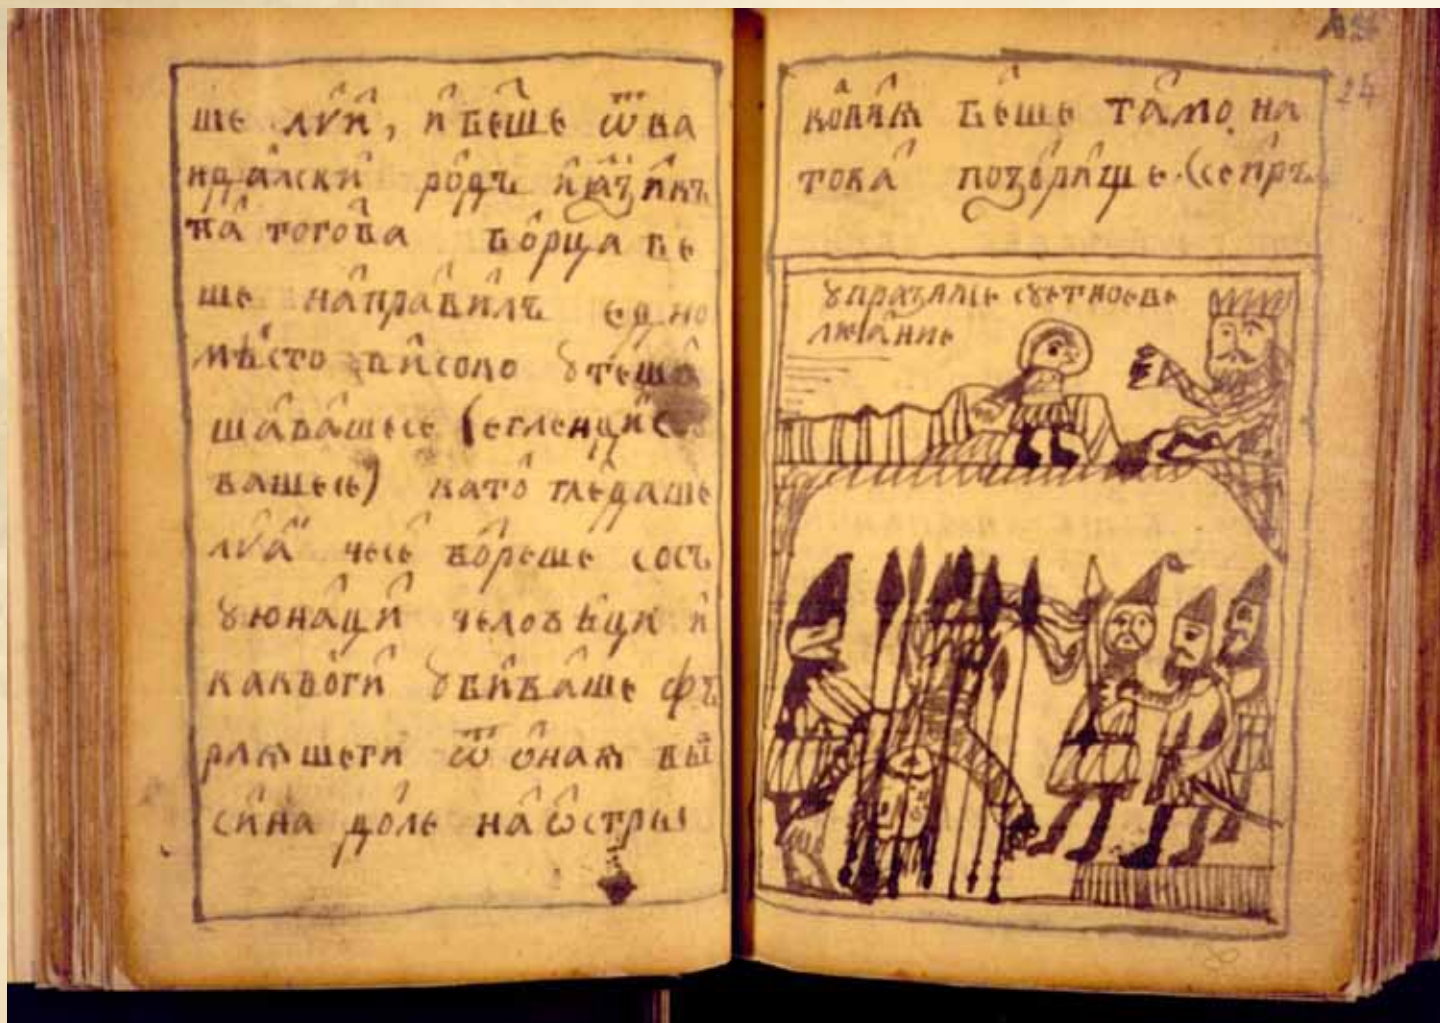 ше лѵй, и беше ѿ ва
ндалски родъ и ѧзикъ
на тогова борца бе
ше направилъ едно
мѣсто високо ꙋтеша
шавашесе (егленџис
вашесе) като гледаше
лѵа чесе бореше сосъ
ꙋюнаци человѣци и
каквоги ꙋбиваше фъ
рлѧшеги ѿ ѡнаѧ вы
сина доле на ѡстры
24
беше тамо. на
това позорище (сеиръ
ꙋпразние сꙋетноеве